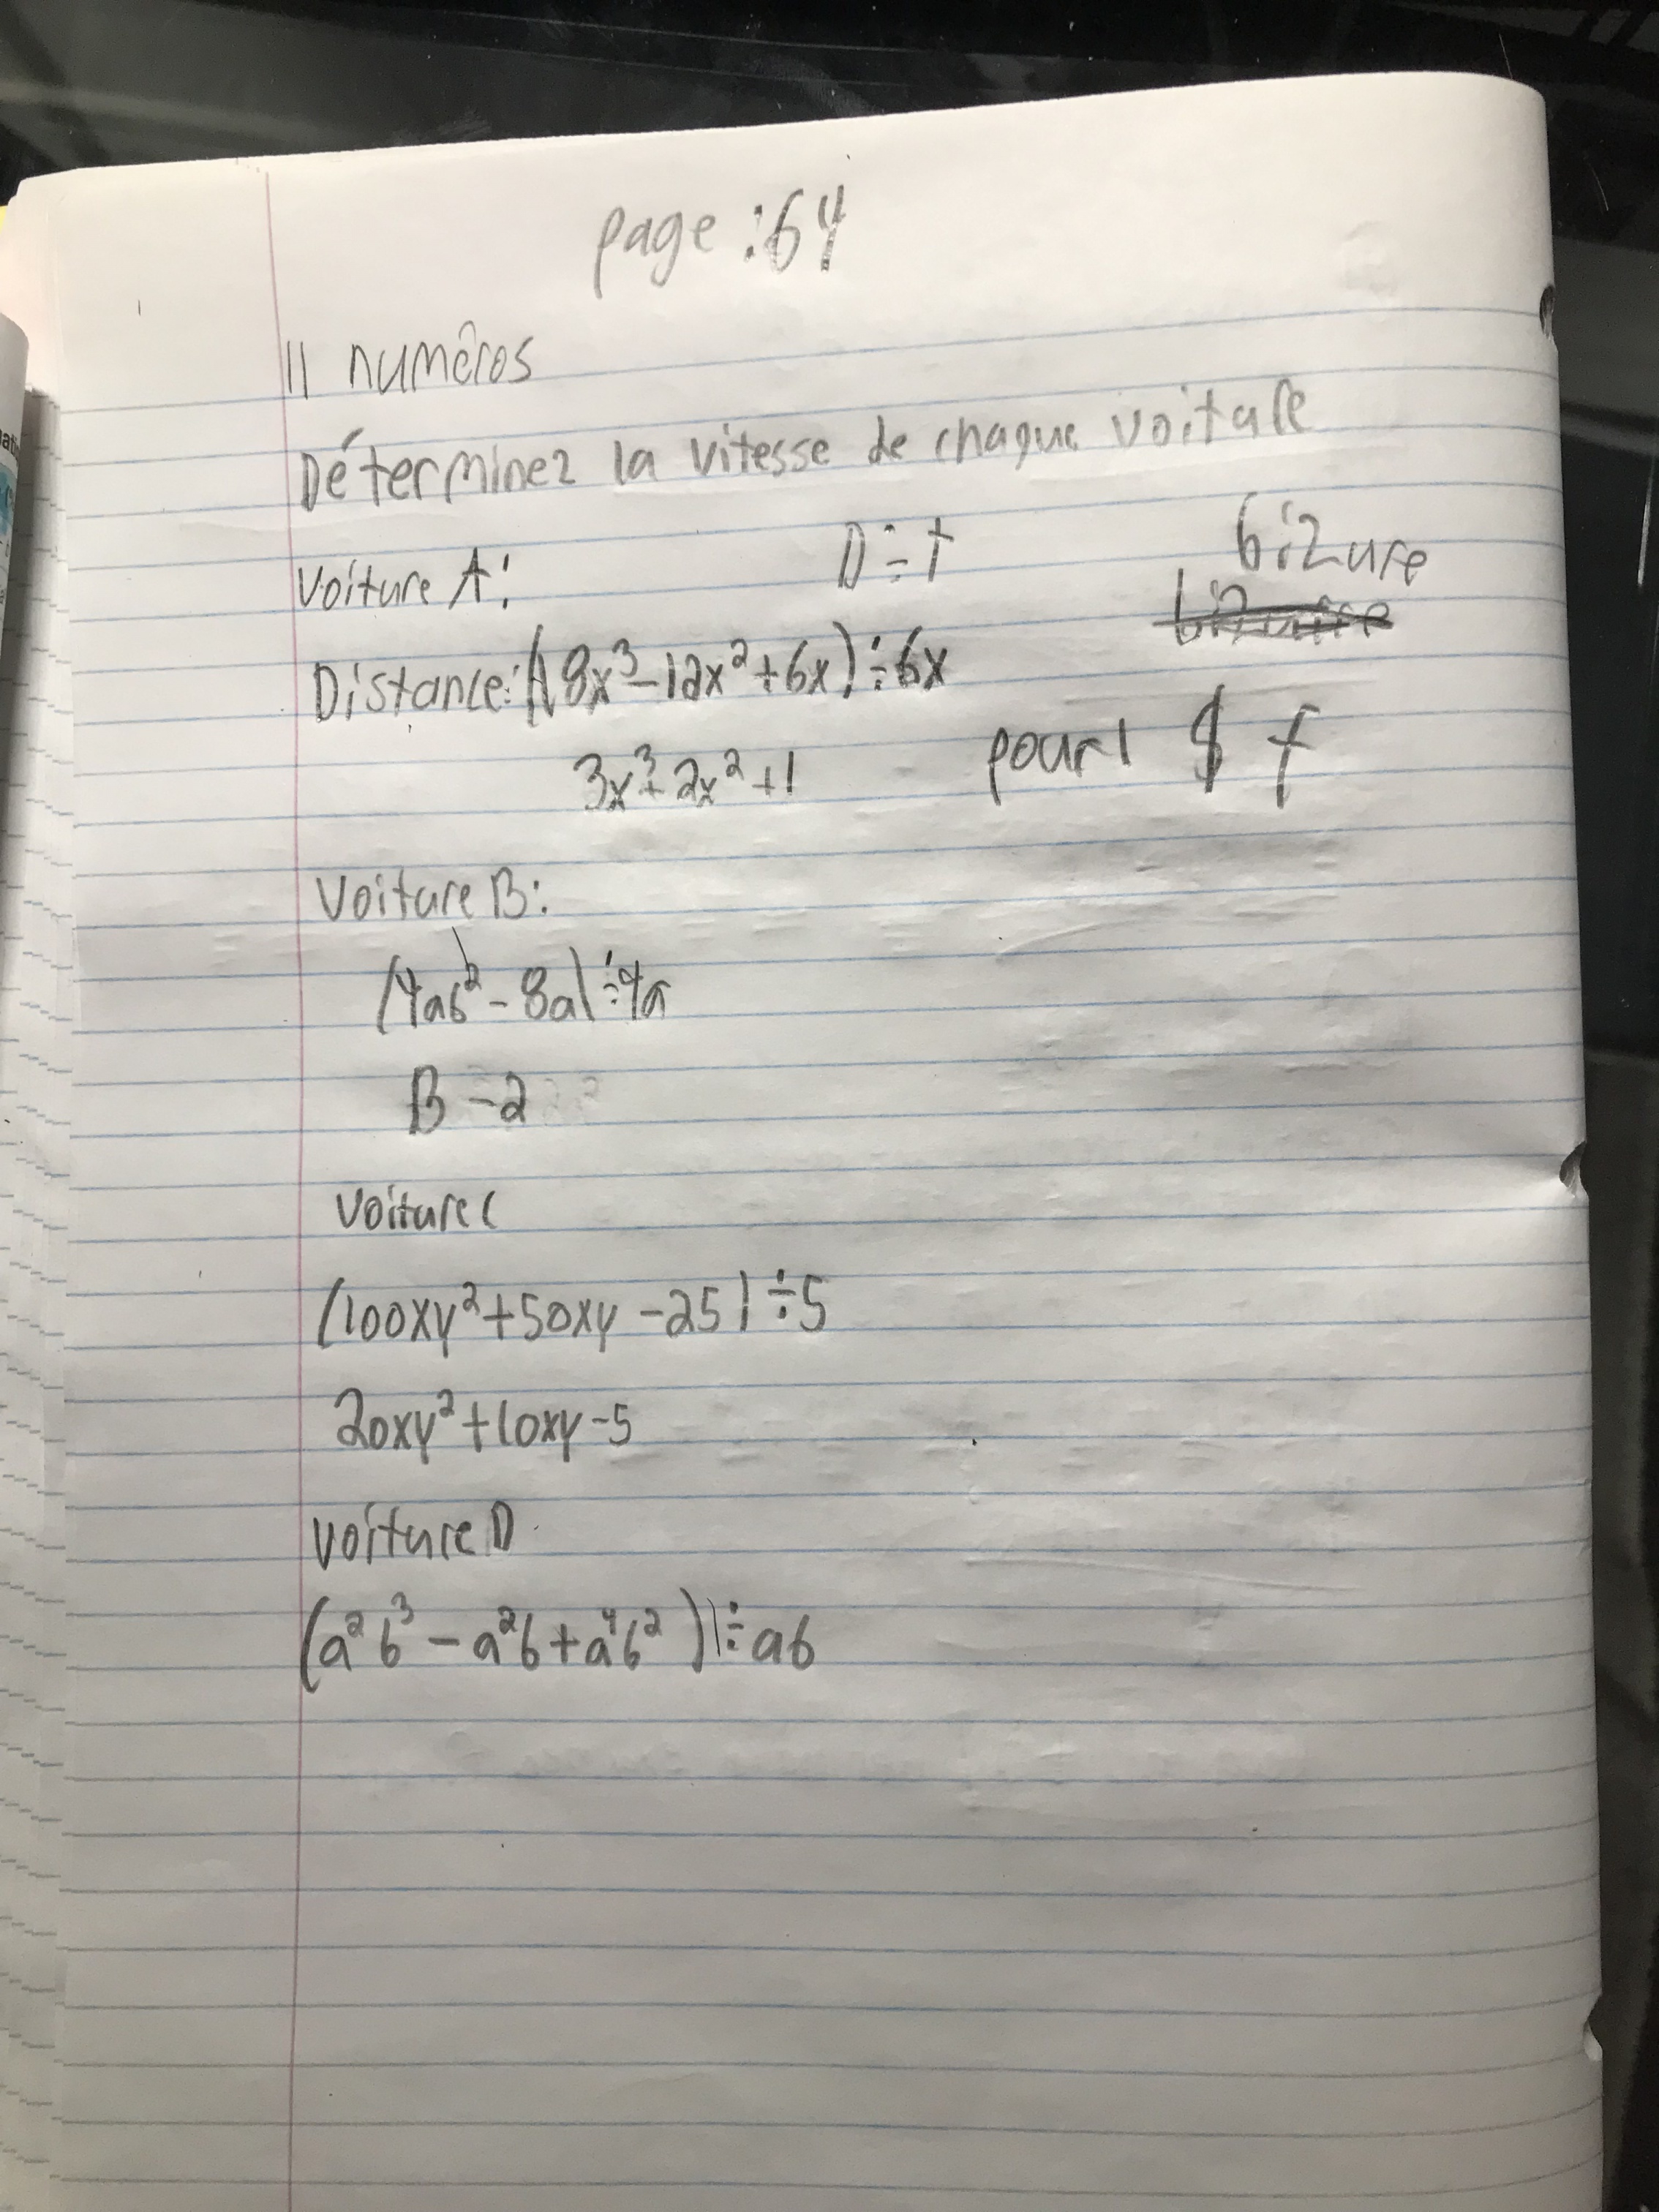 page : 64
11 numéros
Déterminez la vitesse de chaque voiture
Voiture A: D÷t bizure
Distance: (18x³-12x²+6x)÷6x
3x³+2x²+1 pour 1 $ f
Voiture B:
(4ab²-8a)÷4a
B-2
Voiture C
(100xy²+50xy-25)÷5
20xy²+10xy-5
Voiture D
(a²b³-a²b+a⁴b²)÷ab